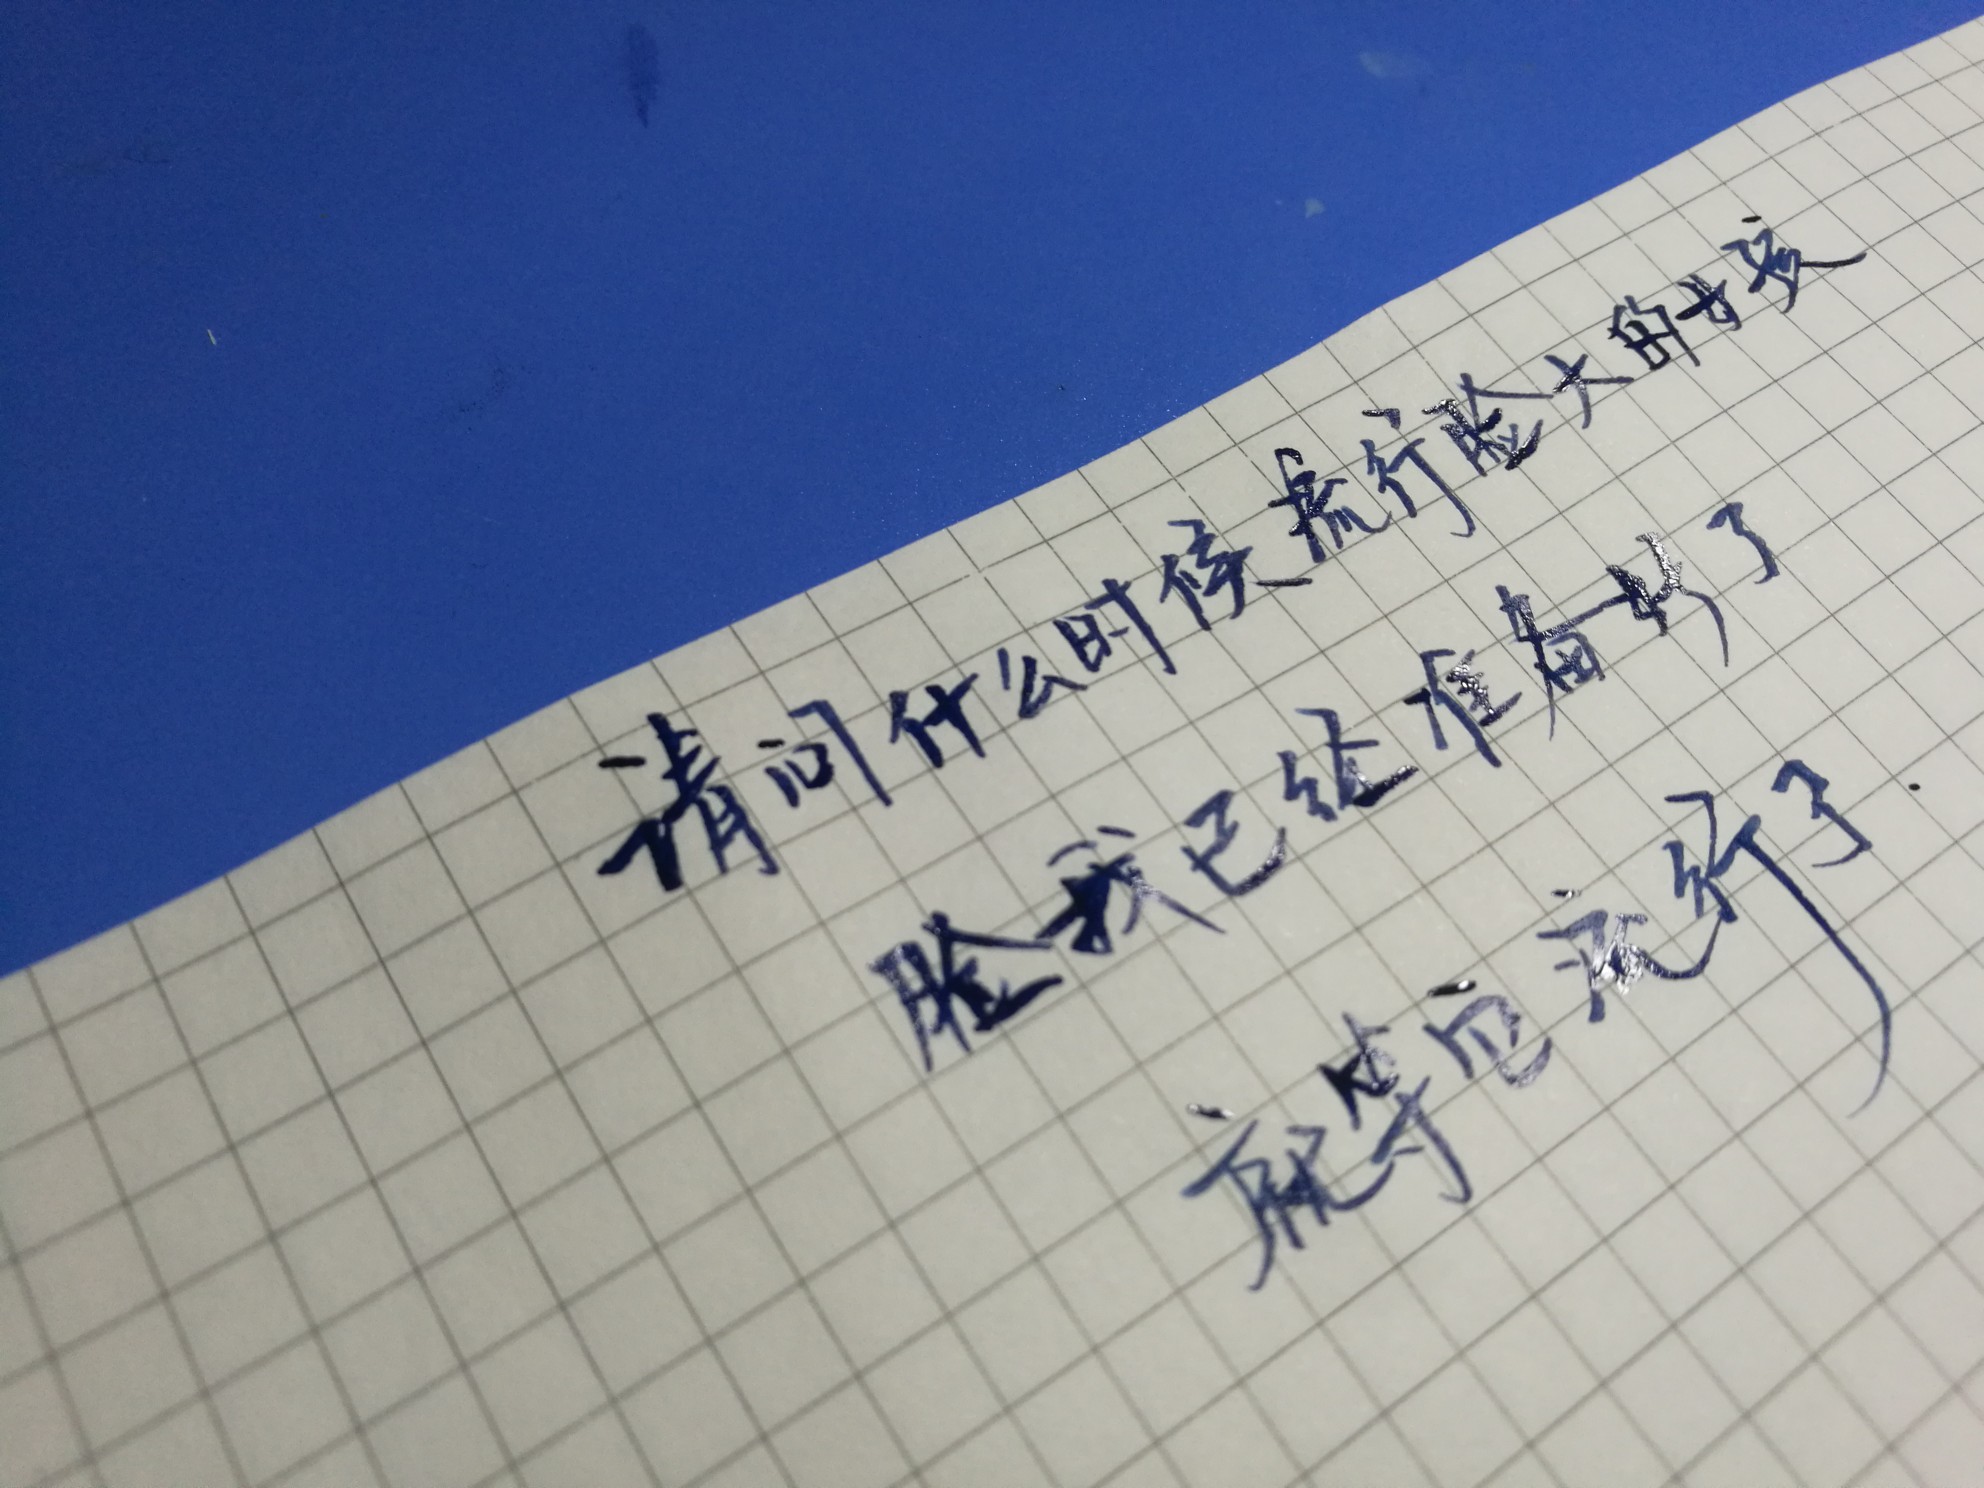 请问什么时候流行脸大的女孩
脸我已经准备好了
就等它流行了